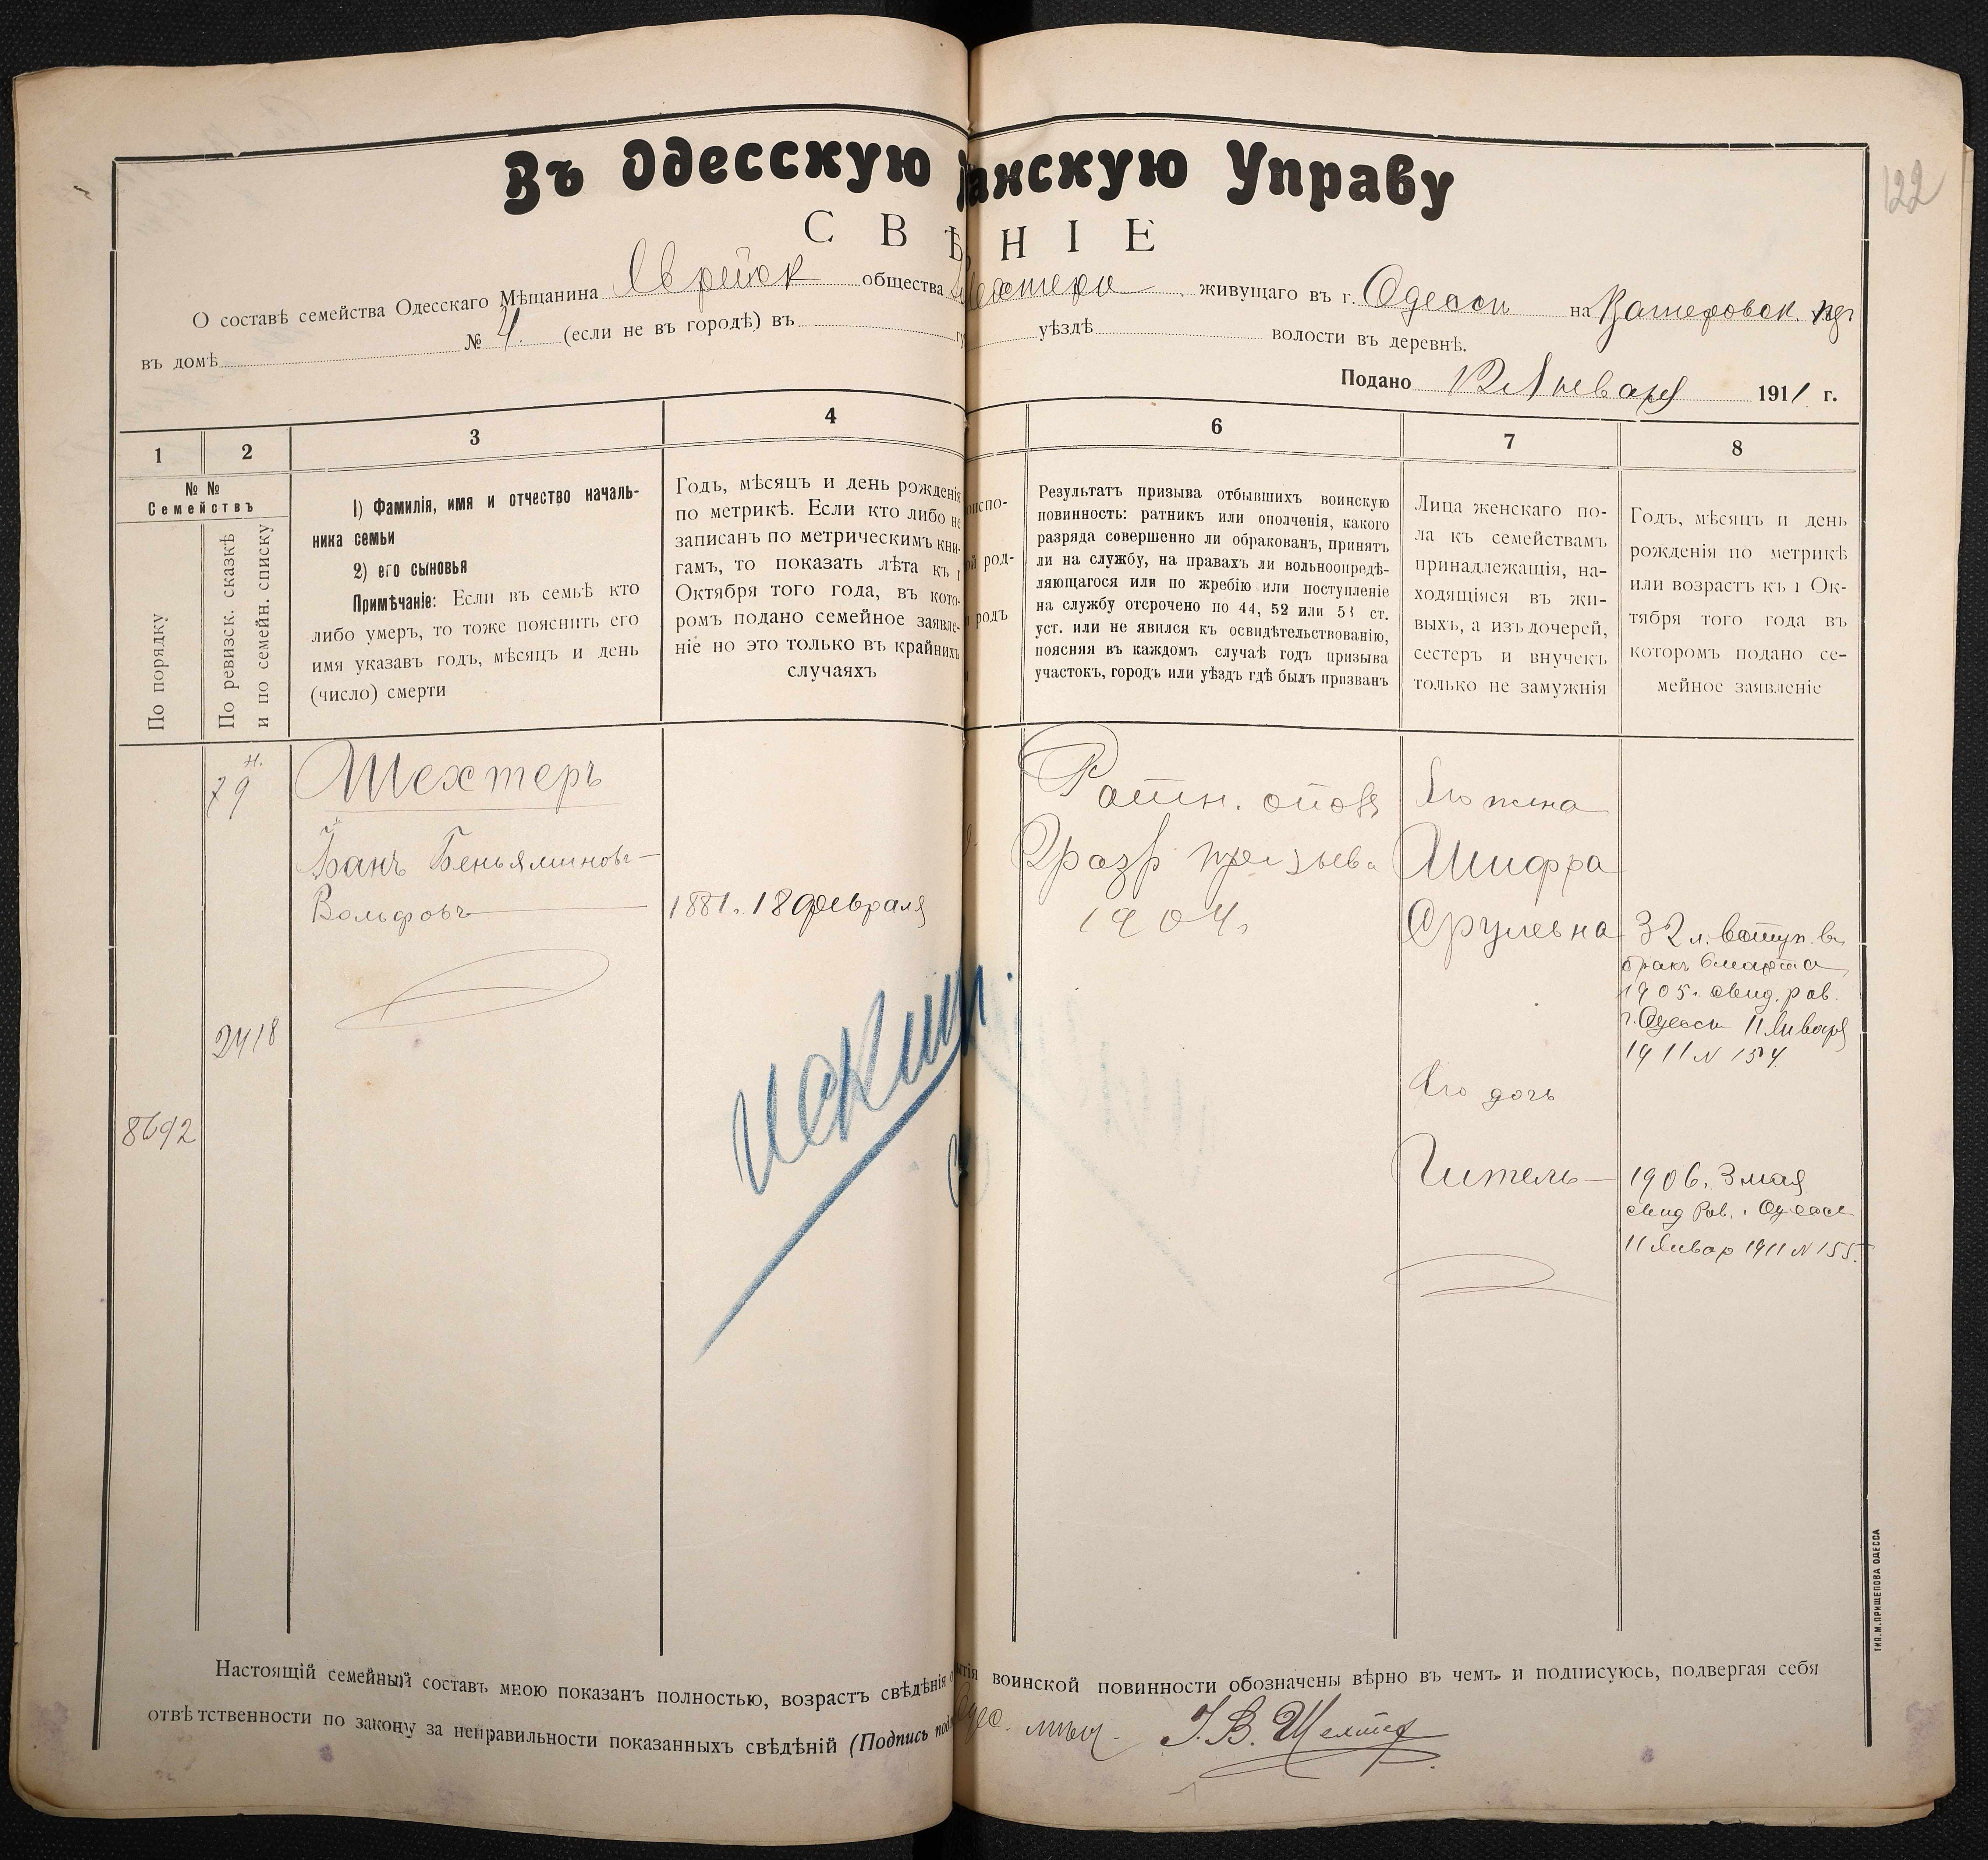 Въ Одесскую
анскую Управу
122
СВѢ
НІЕ
О составѣ семейства Одесскаго Мѣщанина Еврейск общества
Шехтера живущаго въ г. Одессѣ на
въ домѣ № 4. (если не въ городѣ) въ
уѣздѣ волости въ деревнѣ.
Подано 12 Января 1911 г.
1
2
3
4
6
7
8
№ №
Семействъ
По порядку
По ревизск. сказкѣ
и по семейн. списку
1) Фамилія, имя и отчество началь-
ника семьи
2) его сыновья
Примѣчаніе: Если въ семьѣ кто
либо умеръ, то тоже пояснить его
имя указавъ годъ, мѣсяцъ и день
(число) смерти
Годъ, мѣсяцъ и день рожденія
по метрикѣ. Если кто либо не
записанъ по метрическимъ кни-
гамъ, то показать лѣта къ 1
Октября того года, въ кото-
ромъ подано семейное заявле-
ніе но это только въ крайнихъ
случаяхъ
испо-
й род-
родъ
Результатъ призыва отбывшихъ воинскую
повинность: ратникъ или ополченія, какого
разряда совершенно ли обракованъ, принятъ
ли на службу, на правахъ ли вольноопредѣ-
ляющагося или по жребію или поступленіе
на службу отсрочено по 44, 52 или 53 ст.
уст. или не явился къ освидѣтельствованію,
поясняя въ каждомъ случаѣ годъ призыва
участокъ, городъ или уѣздъ гдѣ былъ призванъ
Лица женскаго по-
ла къ семействамъ
принадлежащія, на-
ходящіяся въ жи-
выхъ, а изъ дочерей,
сестеръ и внучекъ
только не замужнія
Годъ, мѣсяцъ и день
рожденія по метрикѣ
или возрастъ къ 1 Ок-
тября того года въ
которомъ подано се-
мейное заявленіе
79
н.
Шехтеръ
Беньяминовъ
Вольфовъ
1881. 18 февраля
2418
8692
Ратн. опол
2 разр призыва
1904.
Его жена
Шифра
Срулевна
32 л. вступ. въ
бракъ 6 марта
1905. свид. рав.
г. Одессы 11 Января
1911 N 154
Его дочь
Гитель
1906. 3 мая
свид Рав. г. Одессы
11 Январ 1911 N 155.
Исключ.
Настоящій семейный составъ мною показанъ полностью, возрастъ свѣдѣнія
воинской повинности обозначены вѣрно въ чемъ и подписуюсь, подвергая себя
отвѣтственности по закону за неправильности показанныхъ свѣдѣній (Подпись
Одес. мѣщ. І. В. Шехтер
ТИП. М. ПРИЩЕПОВА ОДЕССА